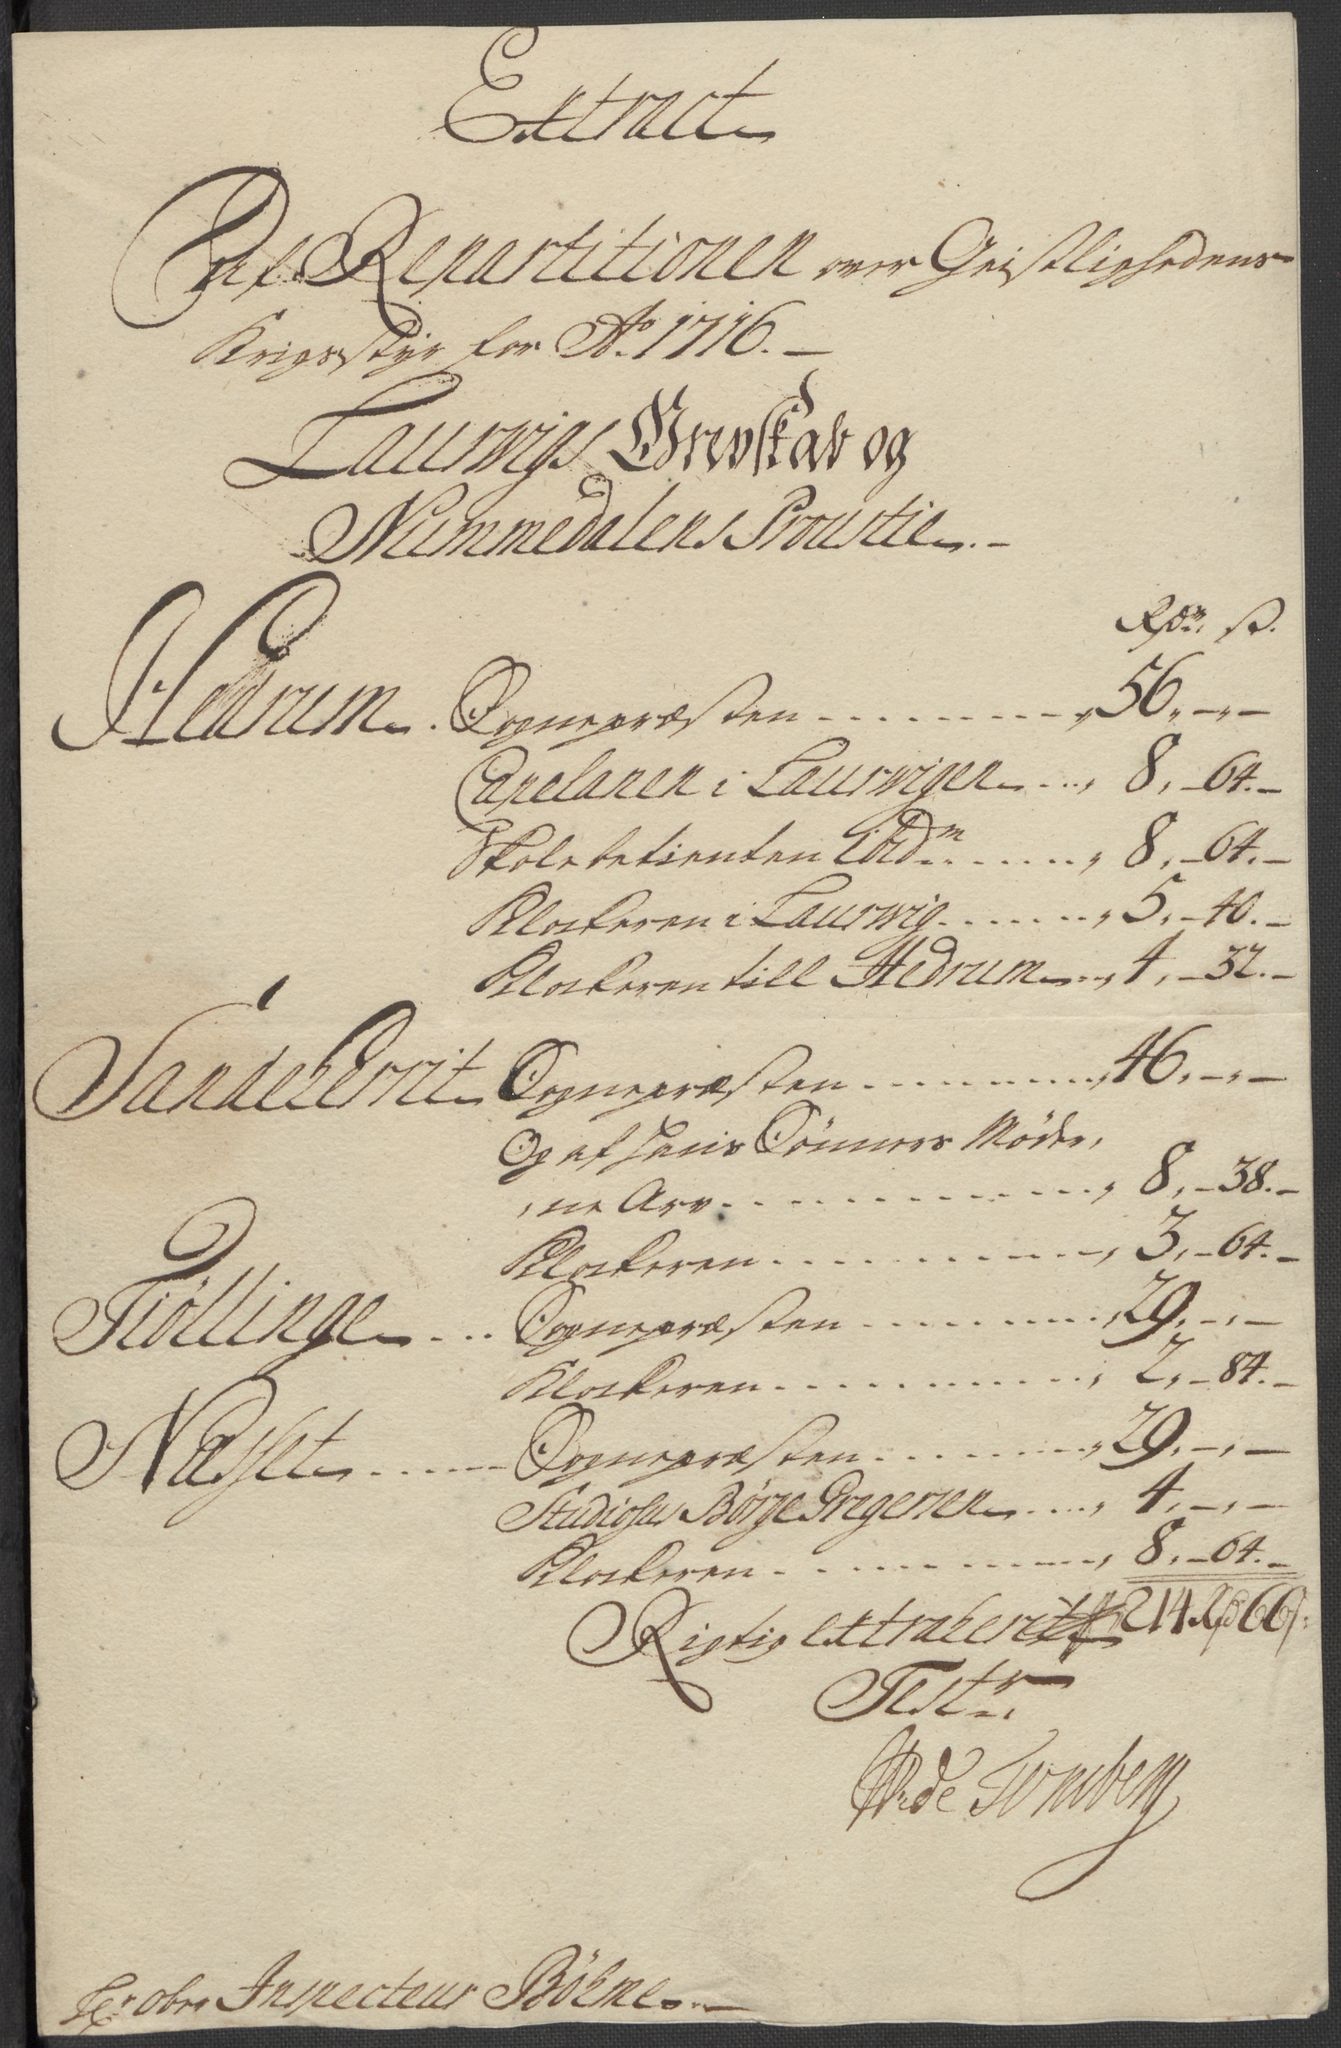 Extract
Af Repartitionen over Geistlighedens
Krigsstyr for Ao. 1716.
Laurwigs Grevskab og
Nummedalens Proustie
Rdr. s.
Hedrum Sognepræsten 56. - -
Capelanen i Laurwigen 8. - 64. -
Skolebetienten ibidm 8. - 64. -
Klockeren i Laurwig 5. - 40. -
Klockeren till Hedrum 4. - 32. -
Sandeherrit Sognepræsten 46. - -
Og af Jens Sønners Møder,
ne Arv 8. - 38. -
Klockeren 3. - 64. -
Tiøllinge Sognepræsten 29. - -
Klockeren 2. - 84. -
Næsset Sognepræsten 29. - -
Studiosus Børge Gregersen 4. - -
Klockeren 8. - 64. -
Rigtig extraherit 214 Rd 66 s.
Test.
de Tonsberg
Inspecteur Böhme